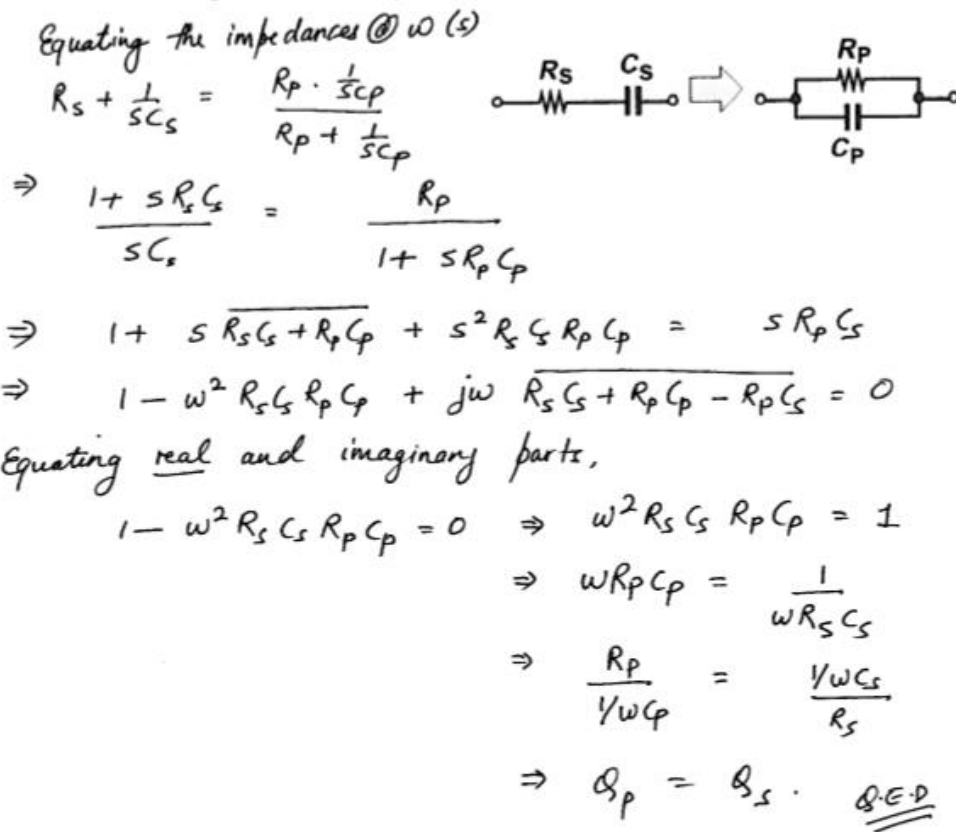 Equating the impedances @ ω (s)
R_s + 1/(sC_s) = (R_p · 1/(sC_p)) / (R_p + 1/(sC_p))
R_S C_S R_P C_P
⇒ (1 + s R_s C_s) / (sC_s) = R_p / (1 + s R_p C_p)
⇒ 1 + s \overline{R_s C_s + R_p C_p} + s² R_s C_s R_p C_p = s R_p C_s
⇒ 1 − ω² R_s C_s R_p C_p + jω \overline{R_s C_s + R_p C_p − R_p C_s} = 0
Equating real and imaginary parts,
1 − ω² R_s C_s R_p C_p = 0 ⇒ ω² R_s C_s R_p C_p = 1
⇒ ω R_p C_p = 1 / (ω R_s C_s)
⇒ R_p / (1/ωC_p) = (1/ωC_s) / R_s
⇒ Q_p = Q_s . Q.E.D